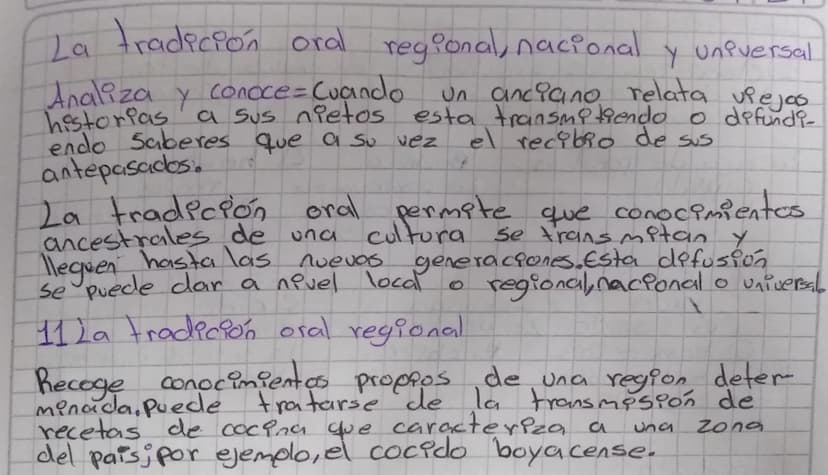 La tradición oral regional, nacional y universal
Analiza y conoce=Cuando un anciano relata viejas
historias a sus nietos esta transmitiendo o difundi-
endo saberes que a su vez el recibio de sus
antepasados.
La tradición oral permite que conocimientos
ancestrales de una cultura se transmitan y
lleguen hasta las nuevas generaciones. Esta difusión
se puede dar a nivel local o regional, nacional o universal
11 La tradición oral regional
Recoge conocimientos propios de una region deter-
minada. Puede tratarse de la transmisión de
recetas de cocina que caracteriza a una zona
del pais; por ejemplo, el cocido boyacense.